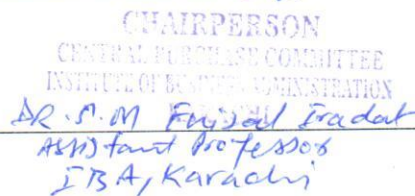 CHAIRPERSON
CENTRAL PURCHASE COMMITTEE
INSTITUTE OF BUSINESS ADMINISTRATION
DR. S. M Faisal Iradat
Assistant Professor
IBA, Karachi